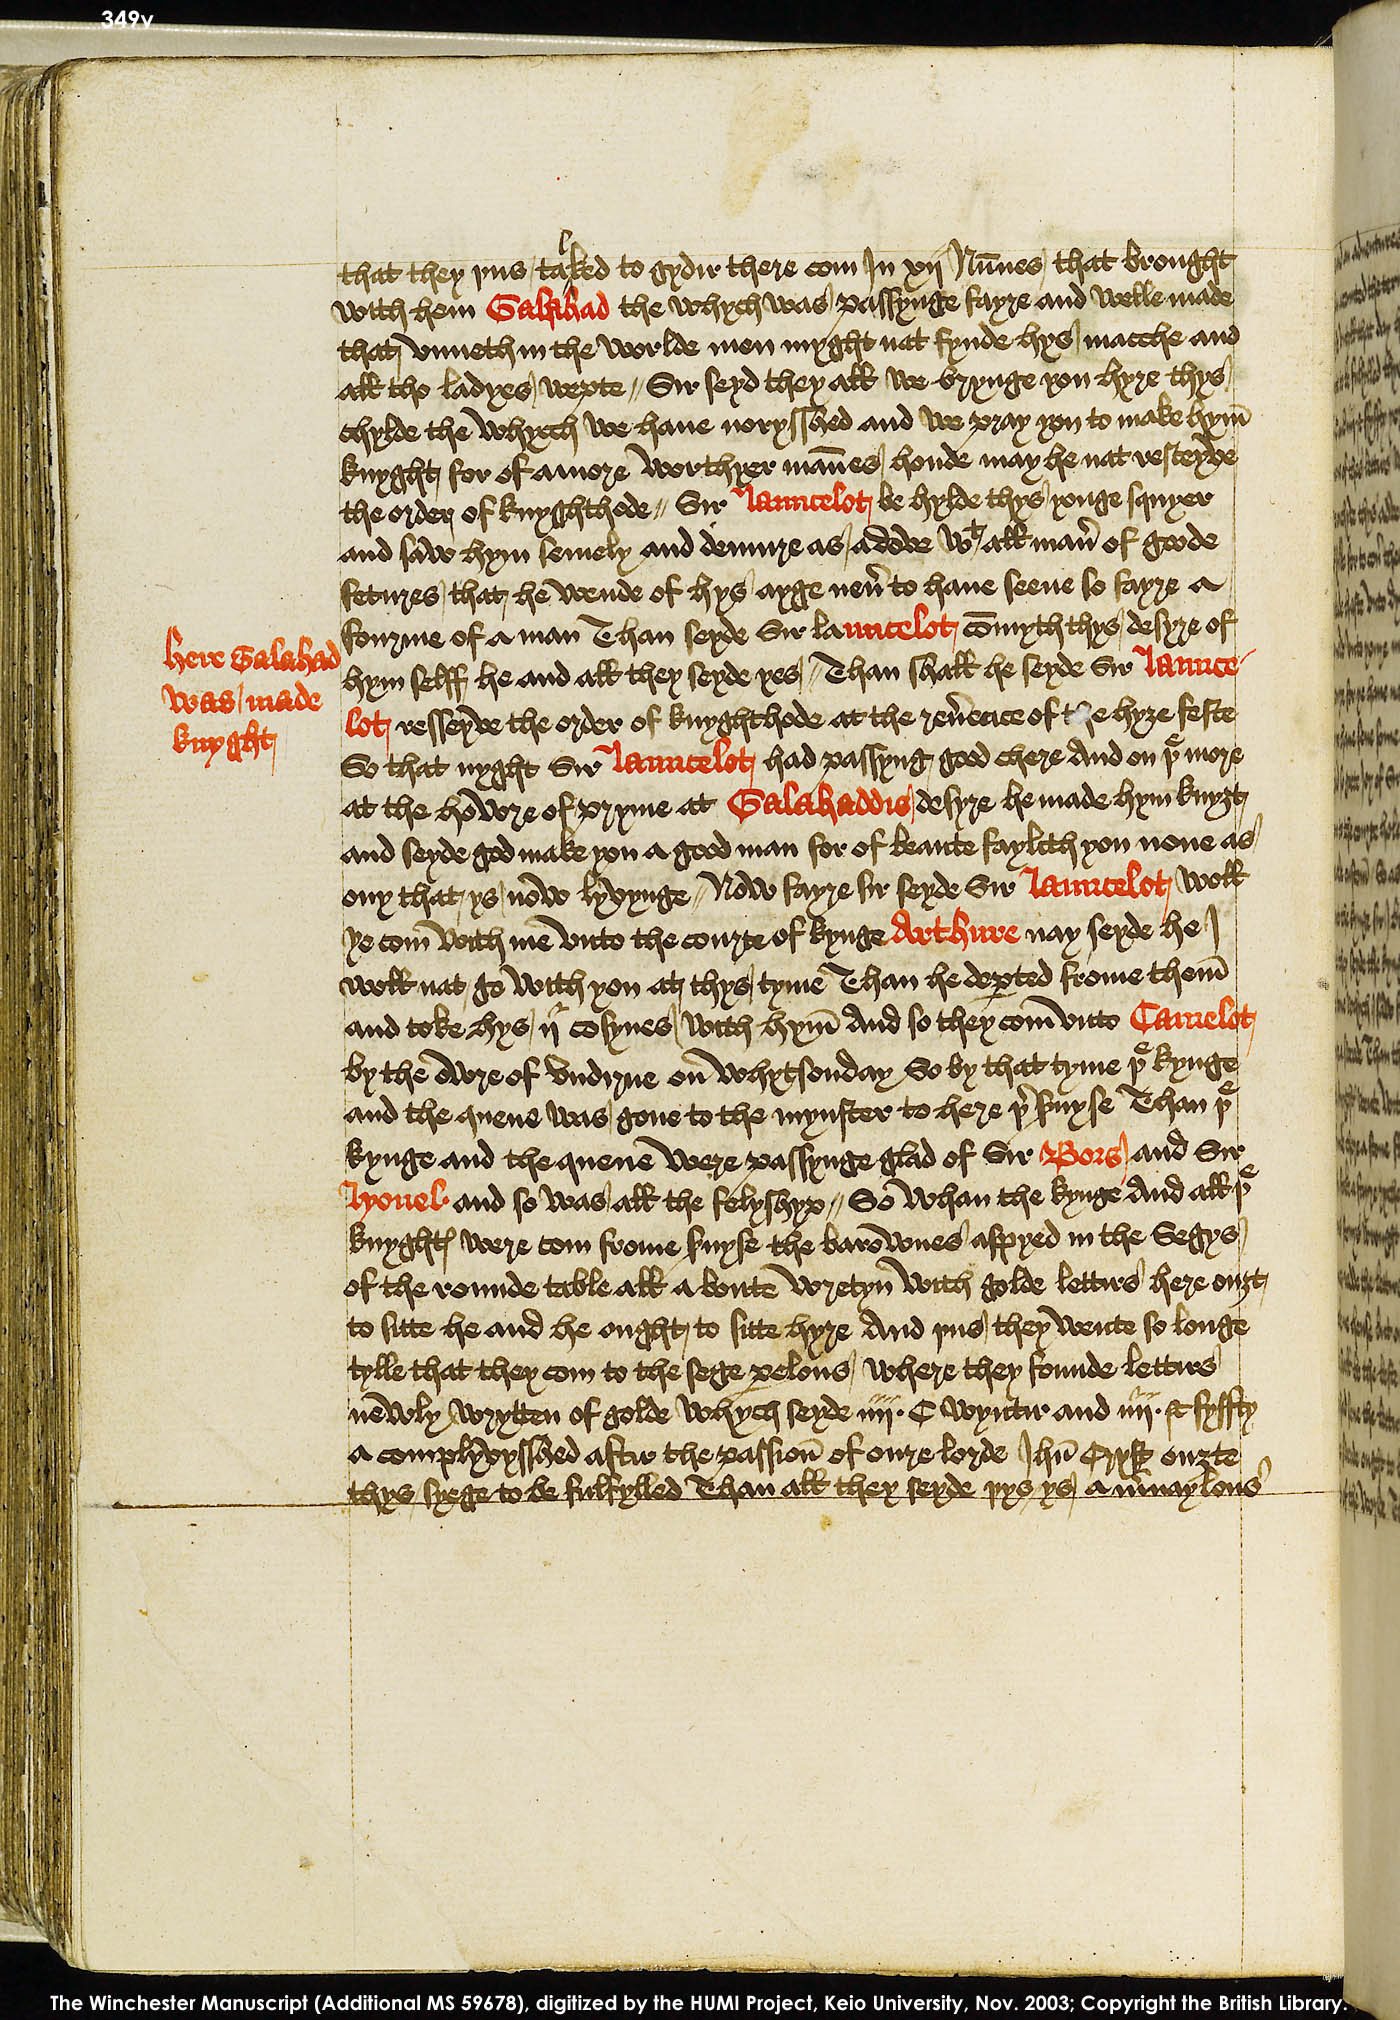 349v
that they þus talked to gydir there com In xij Nūnes that brought
with hem Galahad the whych was passynge fayre and welle made
that vnneth in the worlde men myght nat fynde hys macche and
all tho ladyes wepte // Sir seyd they all we brynge you hyre thys
chylde the whycch we haue norysshed and we pray you to make hym̄
knyght for of a more worthyer mānes honde may he nat resceyve
the order of knyghthode // Sir Launcelot be hylde thys yonge squyer
and saw hym semely and demure as a dove wᵗ all man̄ of goode
fetures that he wende of hys ayge neu̾ to haue seene so fayre a
fourme of a man Than seyde Sir launcelot cōmyth thys desyre of
hym selff he and all they seyde yes // Than shall he seyde Sir Launce
lot resseyve the order of knyghthode at the reu̾ence of the hyȝe feste
So that nyght Sir Launcelot had passyng good chere And on þᵉ more
at the howre of pryme at Galahaddis desyre he made hym knyȝt
and seyde god make you a good man for of beaute faylith you none as
ony that ys now lyvynge // Now fayre sir seyde Sir Launcelot woll
ye com̄ with me vnto the courte of kynge Arthure nay seyde he I
woll nat go with you at thys tyme Than he dep̱ted frome them̄
and toke hys ij cosynes with hym̄ And so they com̄ vnto Camelot
by the owre of vndirne on̄ whytsonday So by that tyme þᵉ kynge
and the quene was gone to the mynster to here þᵉ s̾uyse Than þᵉ
kynge and the quene were passynge glad of Sir Bors and Sir
Lyonel · and so was all the felyshyp // So whan the kynge And all þᵉ
knyghtꝭ were com frome s̾uyse the barownes aspyed in the Segys
of the rounde table all a boute wretyn̄ with golde lettirs here ouȝt
to sitte he and he ought to sitte hyre And þus they wente so longe
tylle that they com to the sege p̱elous where they founde lettirs
newly wrytten of golde whych seyde iiij · C wyntir and iiij · & fyffty
a complyvysshed aftir the passion̄ of oure lorde Ihū Cryst ouȝte
thys syege to be fulfylled Than all they seyde þys ys a m̾uaylous
Here Galahad
was made
knyght
The Winchester Manuscript (Additional MS 59678), digitized by the HUMI Project, Keio University, Nov. 2003; Copyright the British Library.